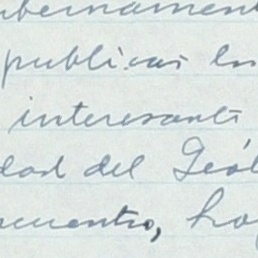 ubernament
publicas en
interesante
dad del Geól
cuentro, hoy